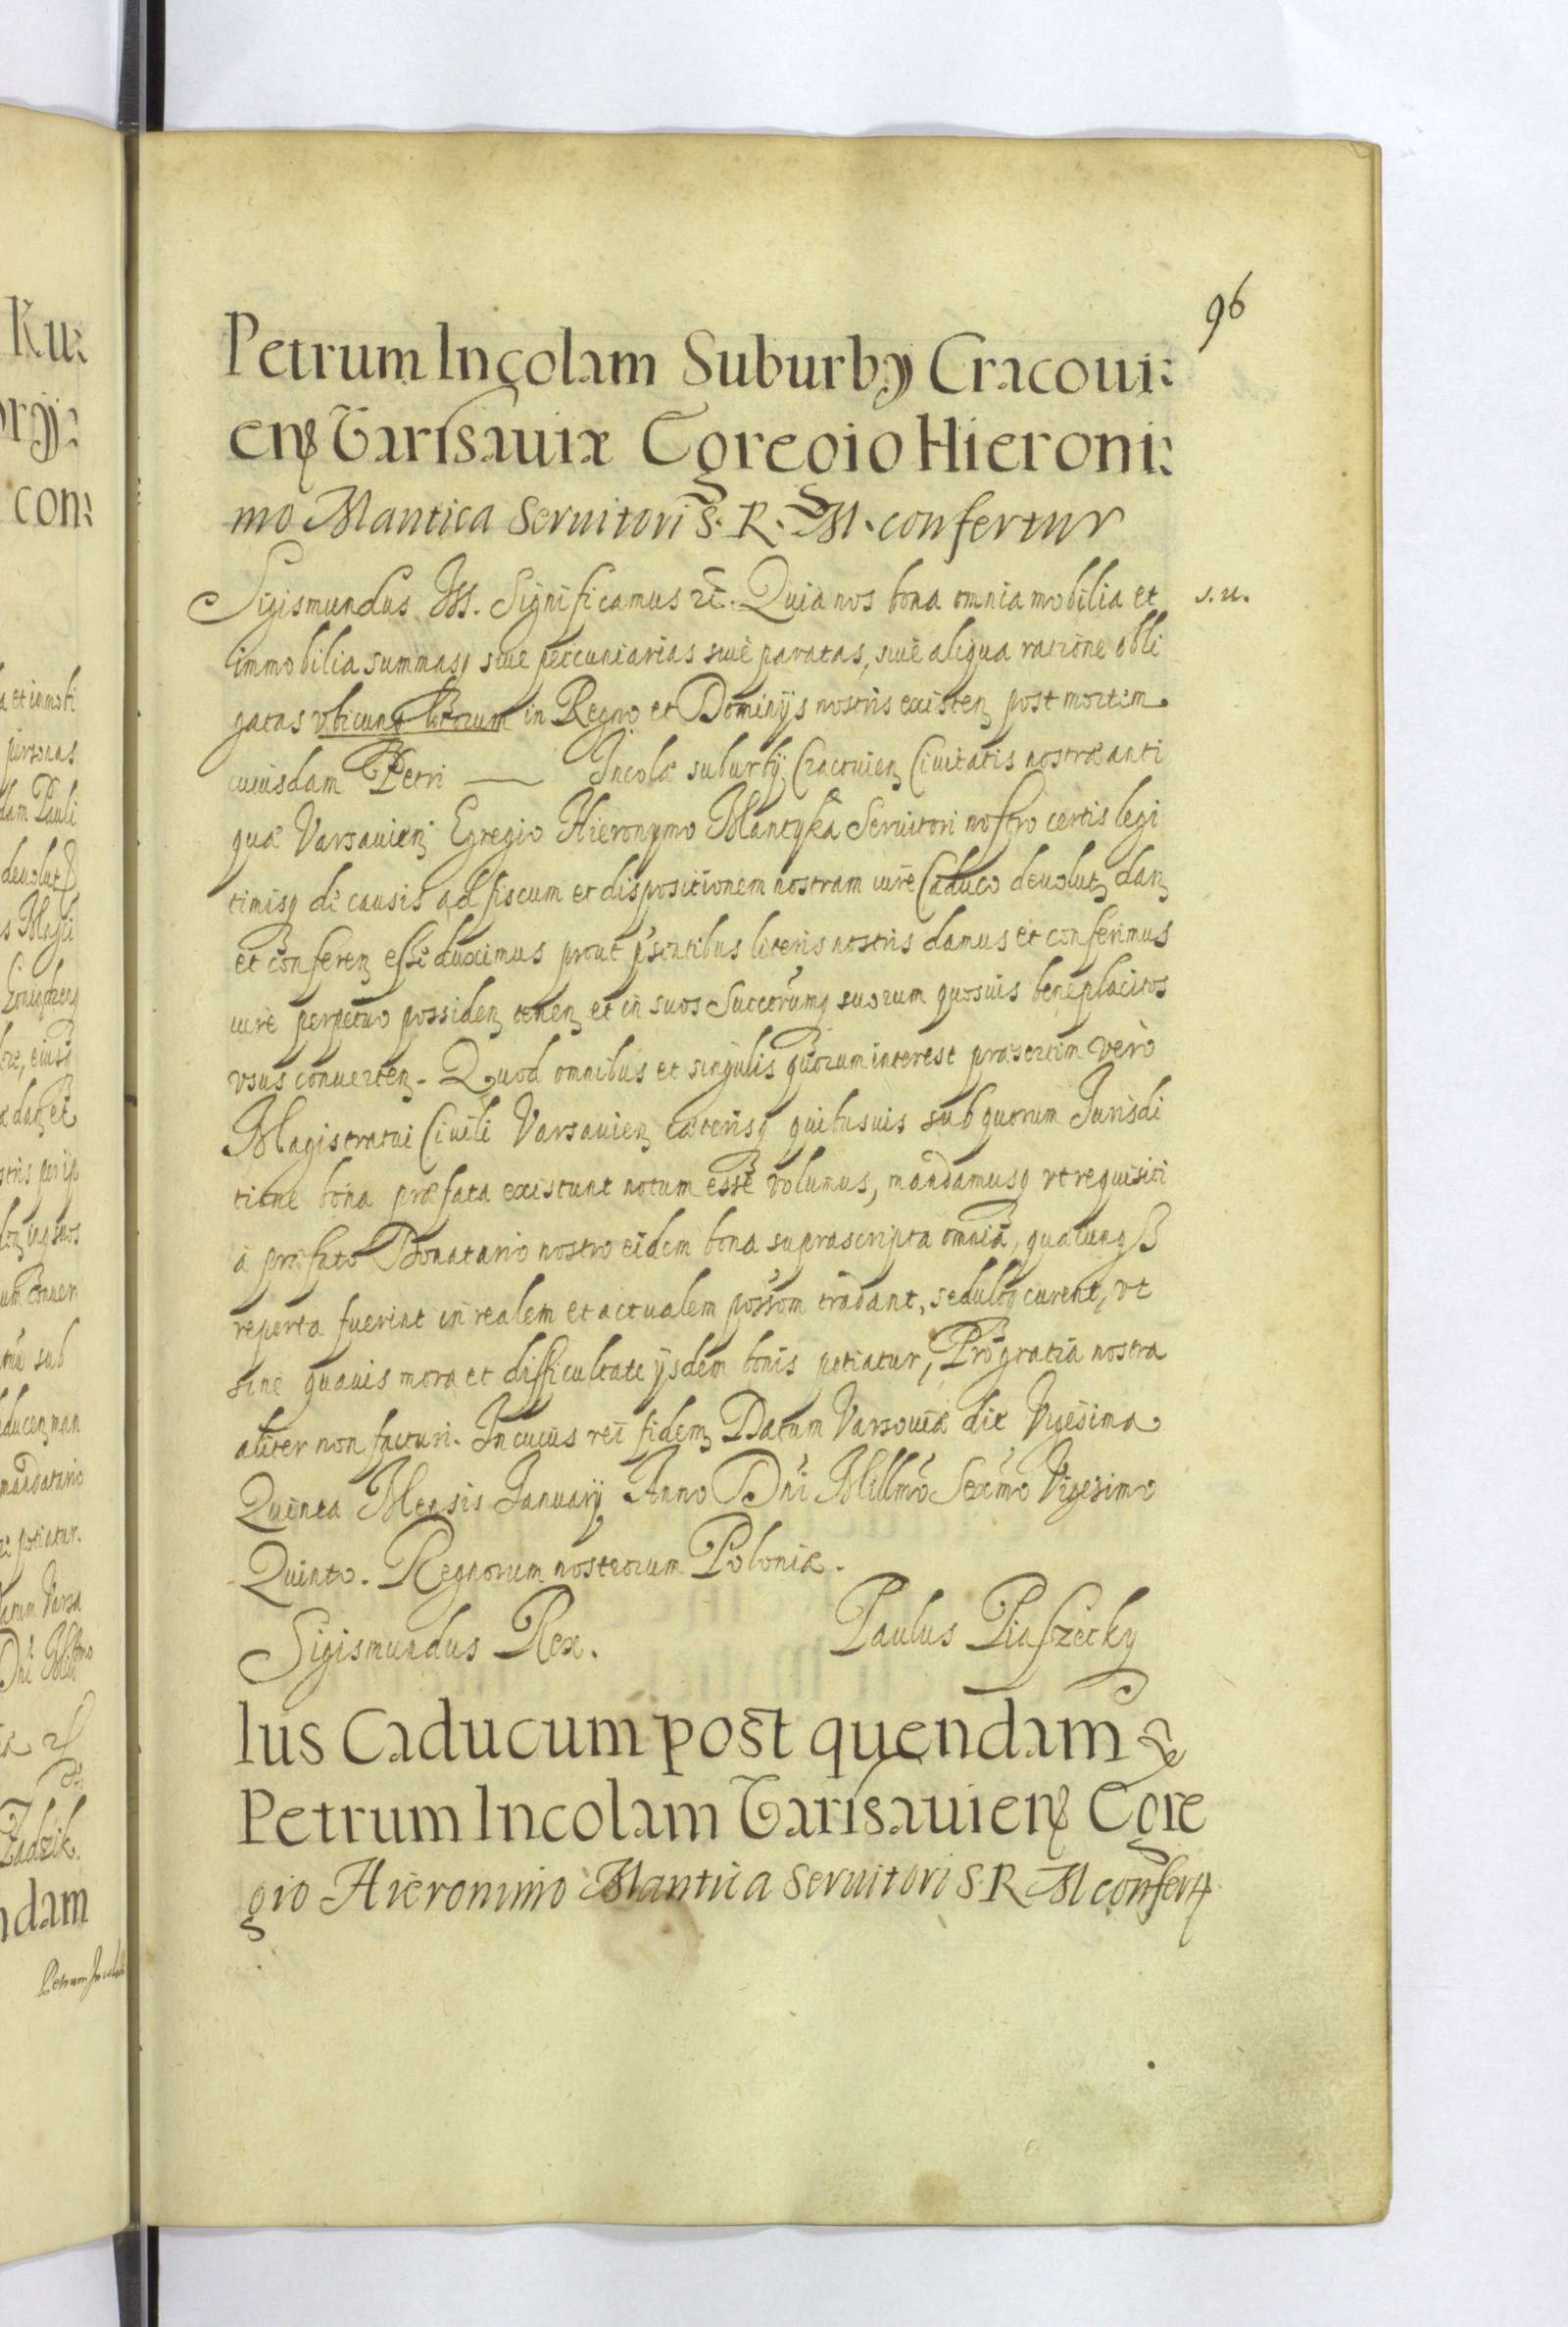 96
Petrum Incolam Suburby Cracoui:
en Varsauiæ Egregio Hieroni:
mo Mantica Seruitori S. R. M. confertur
Sigismundus III. Significamus etc. Quia nos bona omnia mobilia et
s. u.
immobilia summasq siue peccuniarias siue paratas, siue aliqua ratione obli
gatas vbicunq locorum in Regno et Dominijs nostris existen post mortem
cuiusdam Petri — Incolæ suburbij Cracouien Ciuitatis nostræ anti
quæ Varsauien Egregio Hieronymo Mantyka Seruitori nostro certis legi
timisq de causis ad fiscum et dispositionem nostram iure Caduco deuolut dan
et conferen esse duximus prout pńsentibus literis nostris damus et conferimus
iure perpetuo possiden tenen et in suos Succorumq suorum quosuis beneplacitos
vsus conuerten. Quod omnibus et singulis quorum interest præsertim vero
Magistratui Ciuili Varsauien cæterisq quibusuis sub quorum Jurisdi
tione bona præfata existunt notum esse volumus, mandamusq vt requisiti
à præfato Donatario nostro eidem bona suprascripta omnia, quæcunq
reperta fuerint in realem et actualem possom tradant, seduloq curent, vt
sine quauis mora et difficultate ijsdem bonis potiatur, Pro gratia nostra
aliter non facturi. In cuius rei fidem Datum Varsouiæ die Vigesima
Quinta Mensis Januarij Anno Dni Millmo Sexmo Vigesimo
Quinto. Regnorum nostrorum Poloniæ.
Sigismundus Rex. Paulus Piaszecky
Ius Caducum post quendam
Petrum Incolam Varsauien Egre
gio Hieronimo Mantica Seruitori S. R. M confert